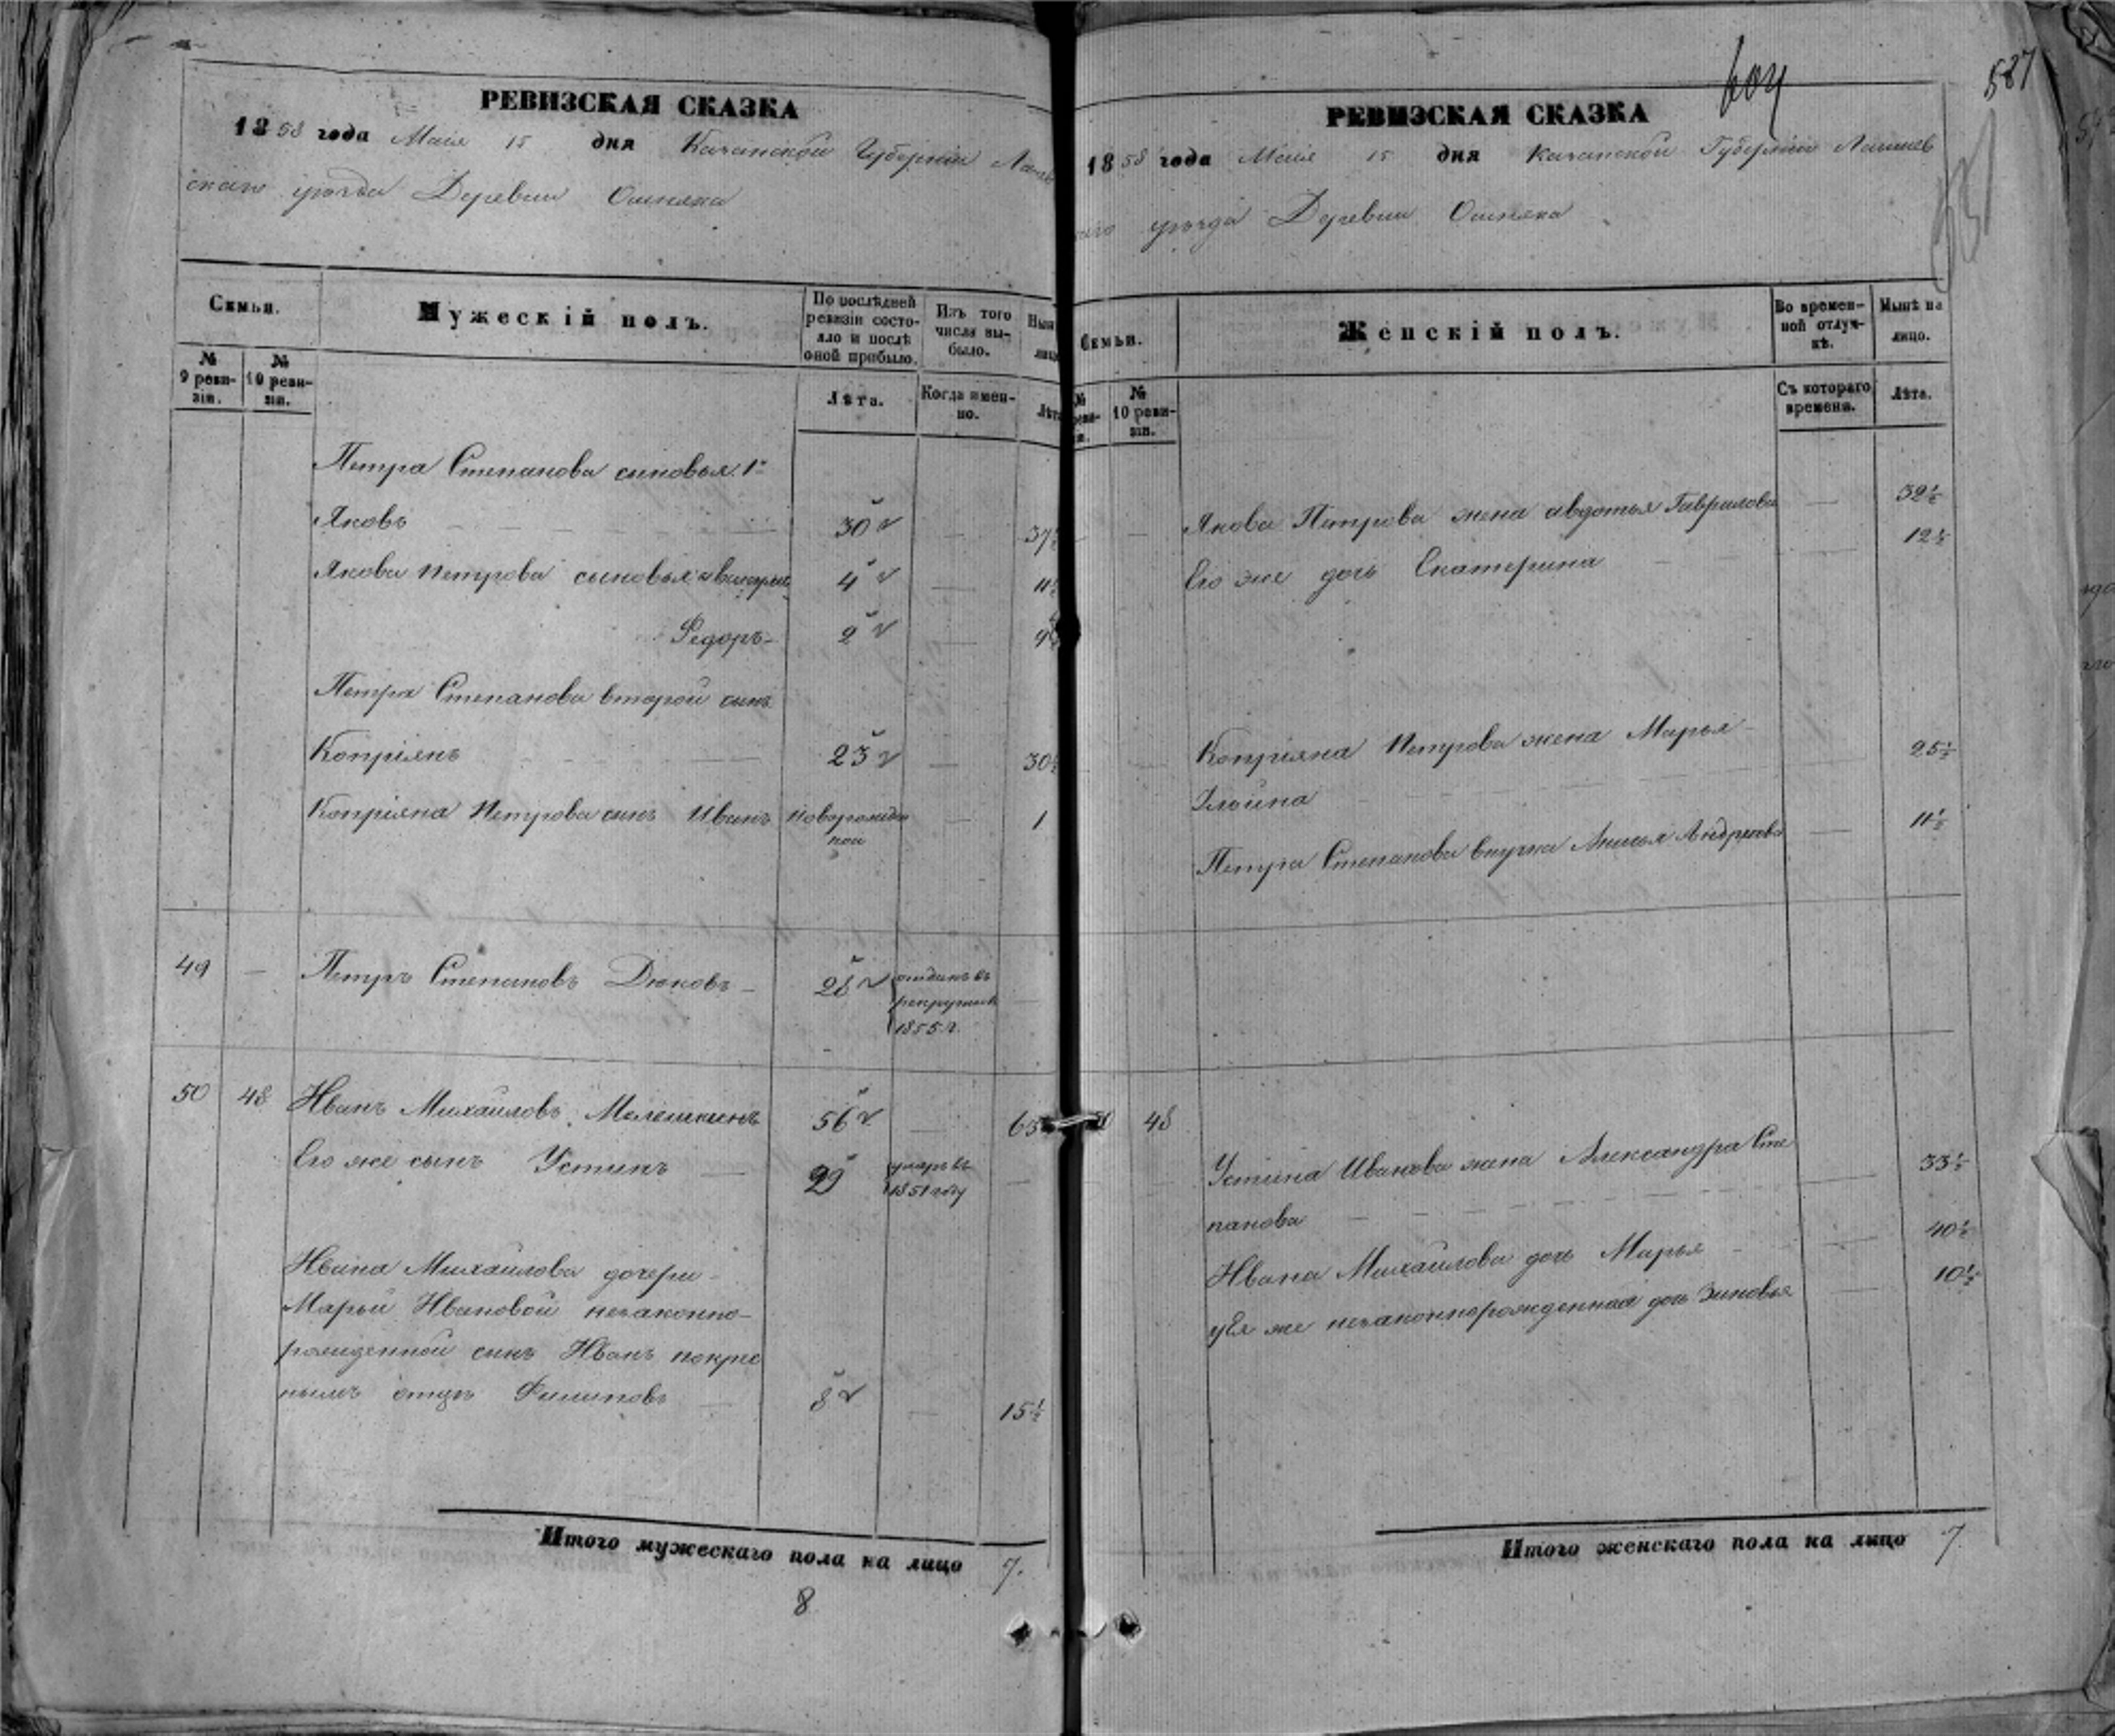 РЕВИЗСКАЯ СКАЗКА
1858 года Маія 15 дня Казанской Губерніи
скаго уезда Деревни Ошняка
Семьи.
Мужескій полъ.
По послѣдней ревизіи состо-
яло и послѣ
оной прибыло.
Изъ того
числа вы-
было.
№
9 реви-
зіи.
№
10 реви-
зіи.
Лѣта.
Когда имен-
но.
Петра Степанова сыновья 1й
Яковъ 30 37
Якова Петрова сыновья 4 11
Федоръ 2 9
Петра Степанова второй сынъ
Копріянъ 23 30
Копріяна Петрова сынъ Иванъ новорожден 1
ной
49 — Петръ Степановъ Дюковъ 28 отданъ въ
рекруты
1855 г.
50 48 Иванъ Михайловъ 56 63
Его же сынъ Устинъ 29 умеръ въ
1851 году
Ивана Михайлова дочери
Марьи Ивановой незаконно-
рожденной сынъ Иванъ покрес
нымъ отцѣ Филиповъ 8 15½
Итого мужескаго пола на лицо 7.
8
604
587
РЕВИЗСКАЯ СКАЗКА
1858 года Маія 15 дня Казанской Губерніи Лаишев
уезда Деревни Ошняка
Семьи.
Женскій полъ.
Во времен-
ной отлуч-
кѣ.
Нынѣ на
лицо.
№
10 реви-
зіи.
Съ котораго
времени.
Лѣта.
Якова Петрова жена авдотья Гаврилова 32½
Его же дочь Екатерина 12½
Копріяна Петрова жена Марья 25½
Петра Степанова внучка Андреева 11½
48
Устина Иванова жена Александра Сте 33½
панова
Ивана Михайлова дочь Марья 40½
у Ея же незаконнорожденная дочь Зиновья 10½
Итого женскаго пола на лицо 7.